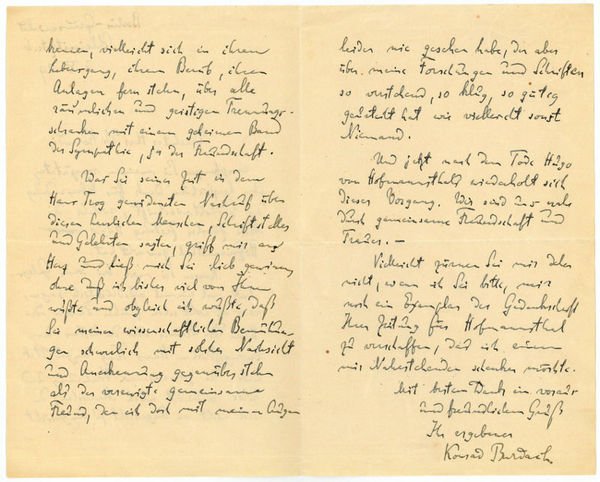 kennen, vielleicht sich in ihrem
Lebensgang, ihrem Beruf, ihren
Anlagen fern stehen, über alle
räumlichen und geistigen Trennungs-
schranken mit einem geheimen Band
der Sympathie, ja der Freundschaft.
Was Sie seiner Zeit in dem
Hans Trog gewidmeten Nachruf über
diesen herrlichen Menschen, Schriftsteller
und Gelehrten sagten, griff mir ans
Herz und ließ mich Sie lieb gewinnen,
ohne daß ich bisher viel von Ihnen
wußte und obgleich ich wußte, daß
Sie meinen wissenschaftlichen Bemühun-
gen schwerlich mit solcher Nachsicht
und Anerkennung gegenüberstehen
als der verewigte gemeinsame
Freund, den ich doch mit meinen Augen
leider nie gesehen habe, der aber
über meine Forschungen und Schriften
so verstehend, so klug, so gütig
geurteilt hat wie vielleicht sonst
Niemand.
Und jetzt nach dem Tode Hugo
von Hofmannsthals wiederholt sich
dieser Vorgang. Wir sind uns nahe
durch gemeinsame Freundschaft und
Trauer. —
Vielleicht zürnen Sie mir daher
nicht, wenn ich Sie bitte, mir
noch ein Exemplar der Gedenkschrift
Ihrer Zeitung für Hofmannsthal
zu verschaffen, das ich einem
mir Nahestehenden schenken möchte.
Mit bestem Dank im voraus
und freundlichem Gruß
Ihr ergebener
Konrad Burdach.